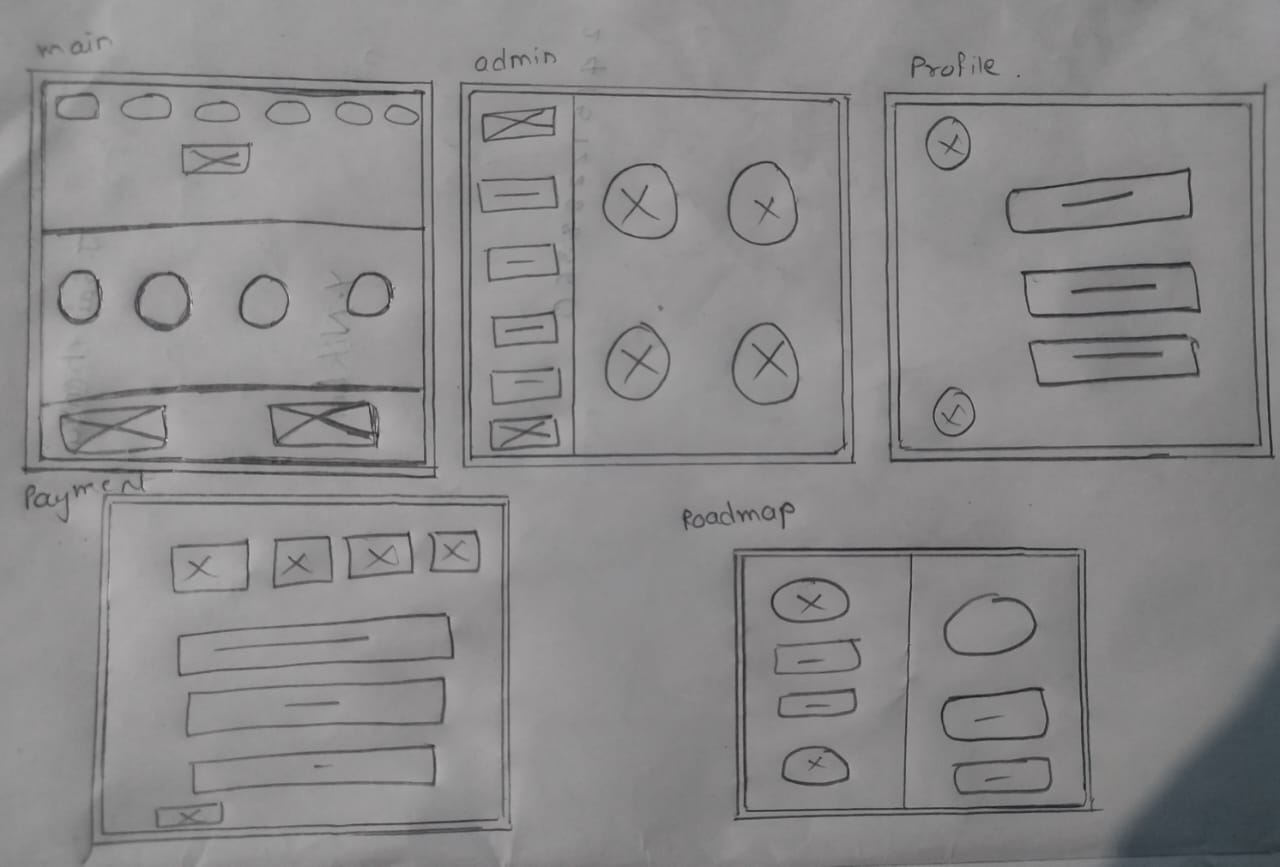 main
admin
Profile.
Payment
Roadmap